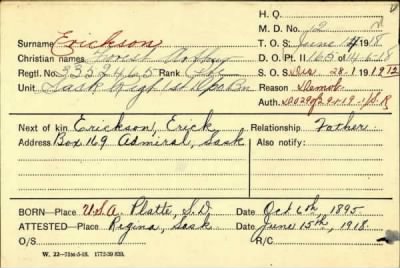 H. Q.
M. D. No. 12
Surname Erickson T. O. S. June 14 1918
Christian names D. O. Pt. II 165 of 14-6-18
Regtl. No. 3352465 Rank Pte S. O. S. Dis 28.1 1919
Unit Sask Regt 1st Dpo Bn Reason Demob
Auth.
Next of kin Erickson, Erick Relationship Father
Address Box 169 Admiral, Sask Also notify:
BORN—Place U.S.A. Platte, S.D. Date Oct 6th, 1895
ATTESTED—Place Regina, Sask Date June 15th, 1918.
O/S R/C
W. 22—75M-5-18. 1772-39 839.